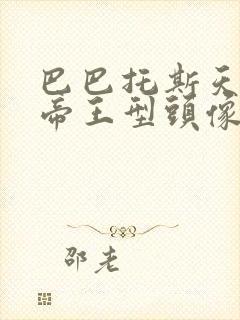 巴巴托斯天
帝王型頭像
邵老